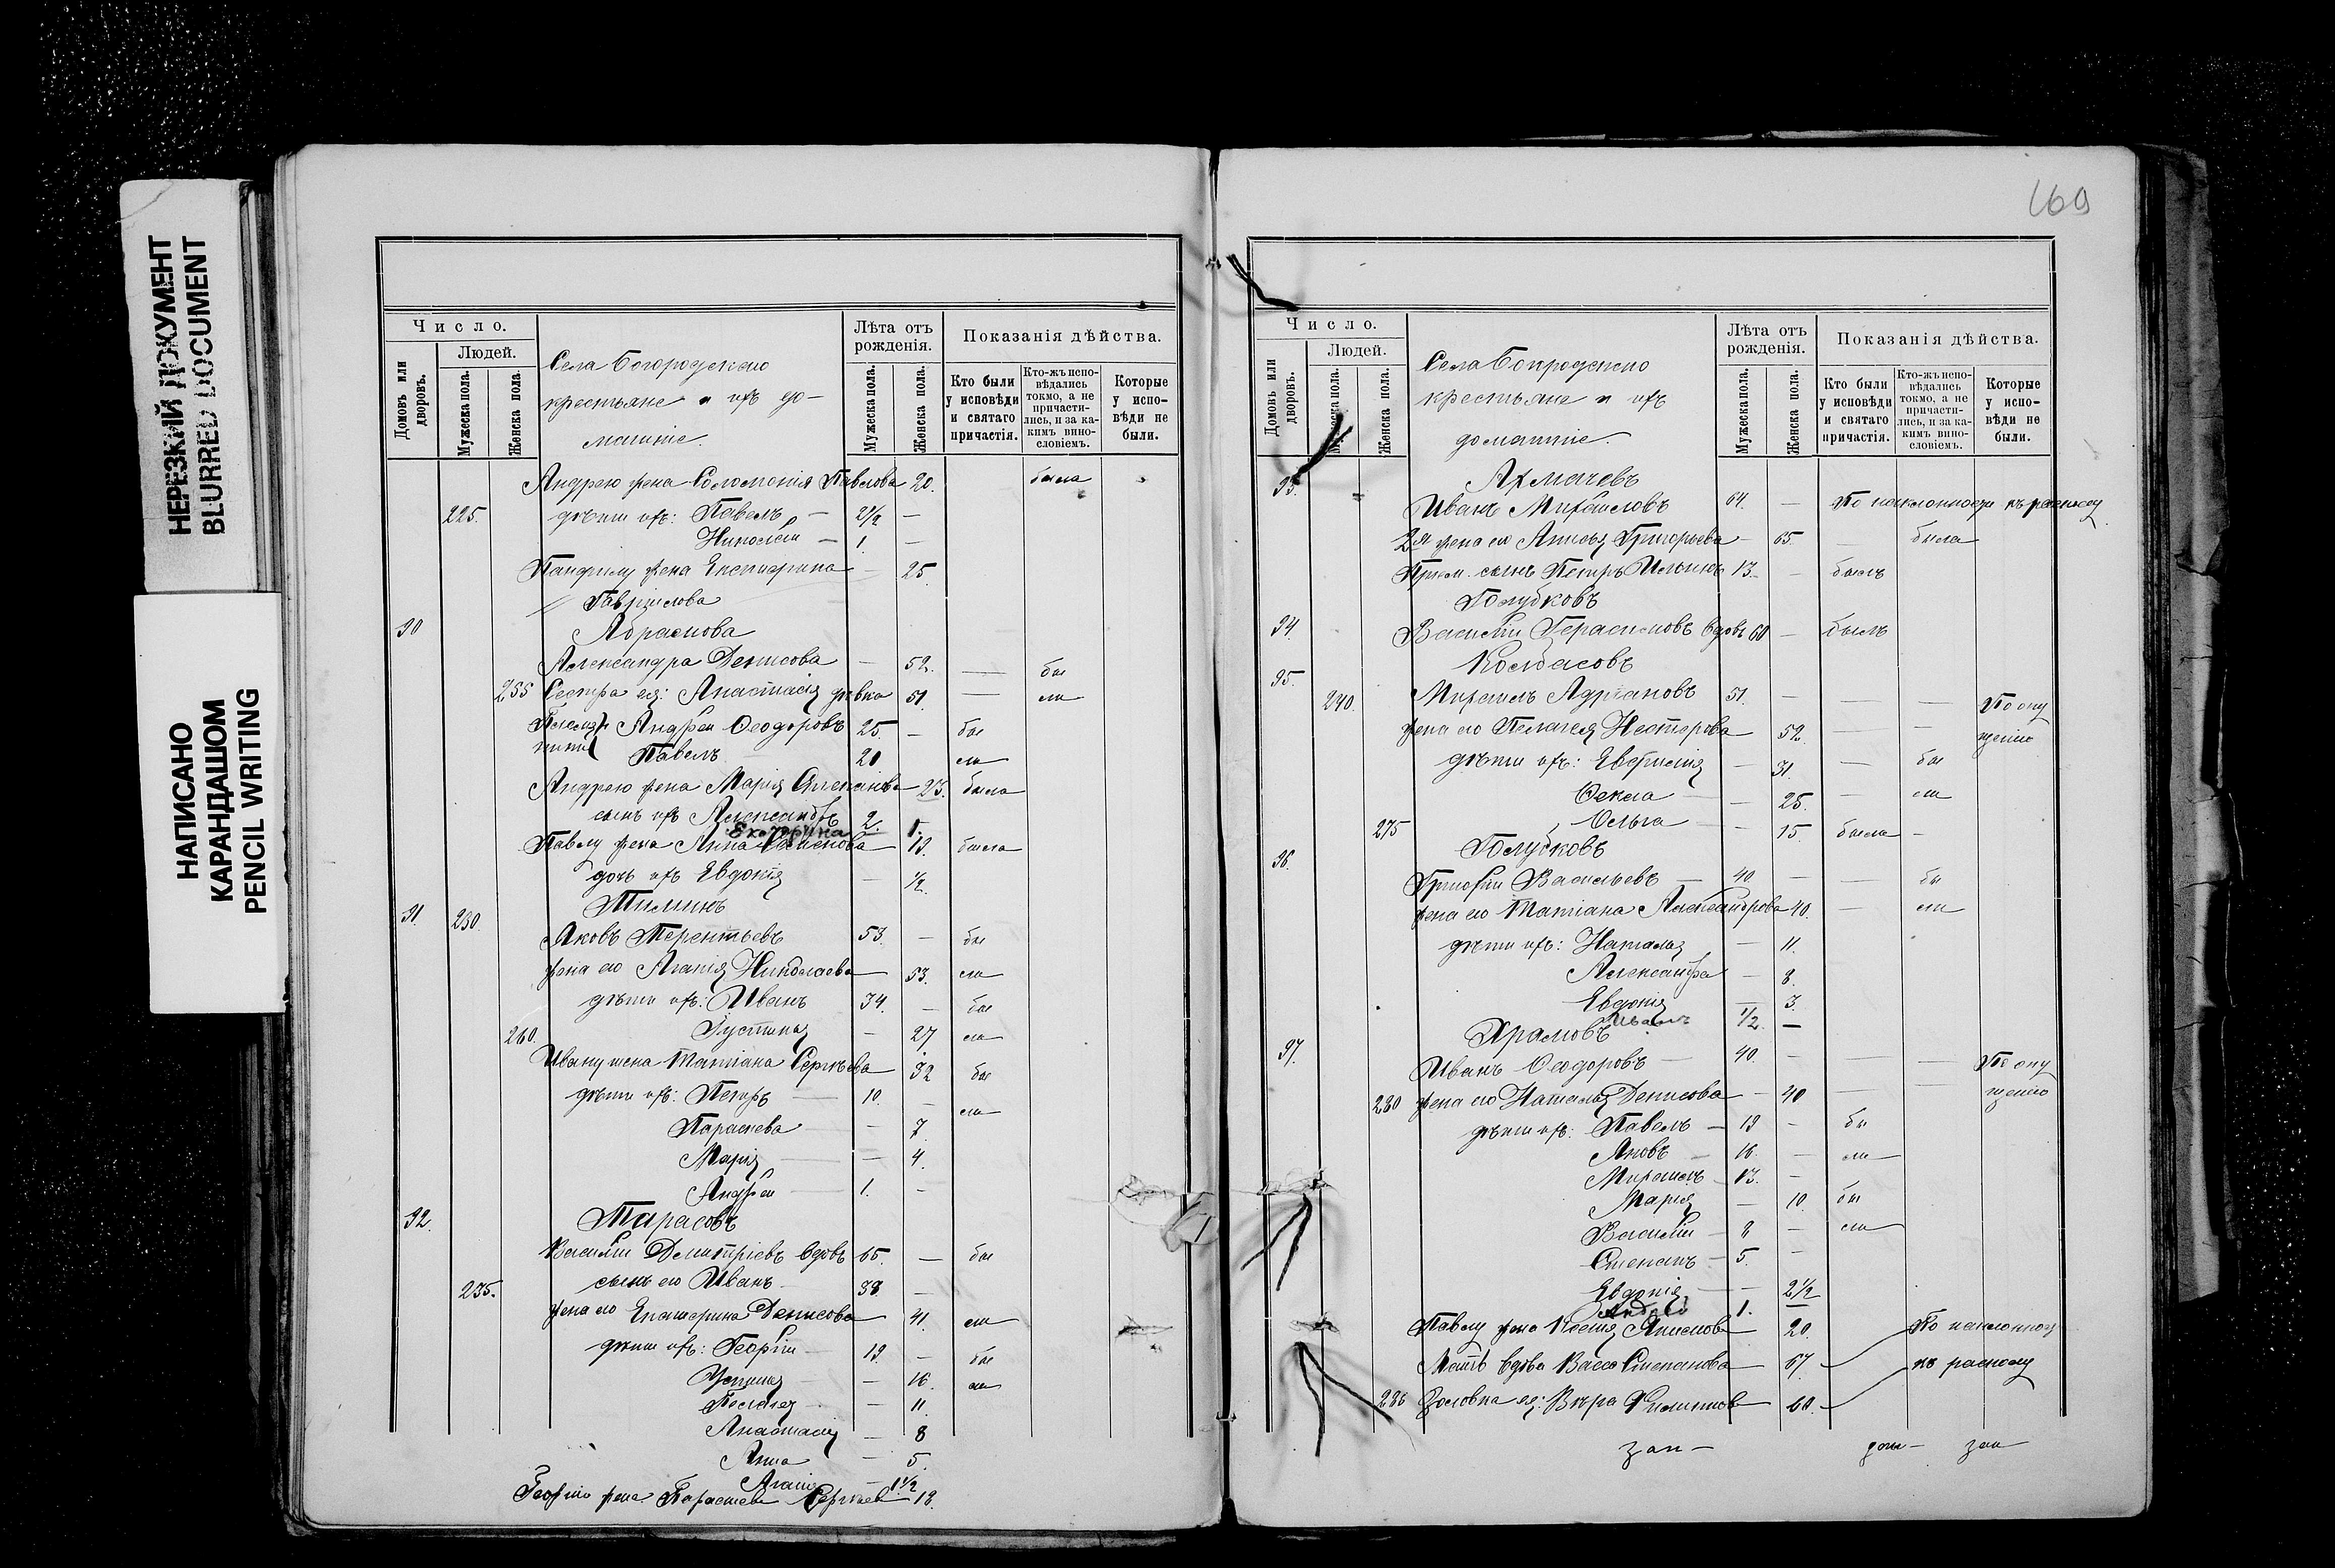 НЕРЕЗКИЙ ДОКУМЕНТ
BLURRED DOCUMENT
НАПИСАНО
КАРАНДАШОМ
PENCIL WRITING
Число.
Людей.
Домовъ или дворовъ.
Мужеска пола.
Женска пола.
Села Богородскаго
крестьяне и ихъ до-
машніе.
Лѣта отъ рожденія.
Мужеска пола.
Женска пола.
Показанія дѣйства.
Кто были у исповѣди и святаго причастія.
Кто-жъ испо-вѣдались токмо, а не причасти-лись, и за ка-кимъ вино-словіемъ.
Которые у испо-вѣди не были.
Андрею жена Соломонія Павлова 20. была
225. дѣти ихъ: Павелъ — 2½ —
Николай — 1. —
Панфилу жена Екатерина — 25.
Гавріилова
90 Абрамова
Александра Денисова — 52. — бы
255 Сестра ея: Анастасія дѣвка 51. — ли
Племян Андрей Ѳеодоровъ 25. — бы
ники Павелъ 20 ли
Андрею жена Марія 23. была
сынъ ихъ Александръ 2.
Екатерина 1.
Павлу жена Анна 19. была
дочь ихъ Евдокія — ½.
Тилинъ
91. 230. Яковъ Терентьевъ 53. — бы
жена его Агапія Николаева 53. ли
дѣти ихъ: Иванъ 34. — бы
260. Іустинія — 27 ли
Ивану жена Татіана Сергѣева 32 бы
дѣти ихъ: Петръ — 10. — ли
Параскева — 7.
Марія — 4.
Андрей 1. —
92. Тарасовъ
Василій Димитріевъ вдовъ 65. — бы
235. сынъ его Иванъ 38. —
жена его Екатерина Денисова 41. ли
дѣти ихъ: Георгій 19. — бы
— 16. ли
Пелагея — 11.
Анастасія — 8
Анна — 5.
Агапія — 1½
Георгію жена Параскева Сергѣев 18.
169
Число.
Людей.
Домовъ или дворовъ.
Мужеска пола.
Женска пола.
Села Богородскаго
крестьяне и ихъ
домашніе.
Лѣта отъ рожденія.
Мужеска пола.
Женска пола.
Показанія дѣйства.
Кто были у исповѣди и святаго причастія.
Кто-жъ испо-вѣдались токмо, а не причасти-лись, и за ка-кимъ вино-словіемъ.
Которые у испо-вѣди не были.
93. Ахмачевъ
Иванъ Михаиловъ 64. — По наклонности къ расколу
2я жена его Анисья Григорьева — 65. — была
Пріем. сынъ Петръ Ильинъ 13. — былъ
Голубковъ
94. Василій Герасимовъ вдовъ 60 — былъ
Колбасовъ
95. 240. Михаилъ Адріановъ 51. — — — По опу
жена его Пелагея Нестерова 52. — — щенію
дѣти ихъ: Евфимія — 31. — бы
Ѳекла — 25. — ли
275 Ольга — 15. была —
Голубковъ
96. Григорій Васильевъ — 40 — — бы
жена его Татіана Александрова 40. — ли
дѣти ихъ: Наталья — 11.
Александра — 8.
Евдокія — 3.
Иванъ ½. —
Храмовъ
97. Иванъ Ѳеодоровъ — 40. — — — По опу
280 жена его Наталья Денисова — 40 — — щенію
дѣти ихъ: Павелъ — 19 — бы
Яковъ — 16. — ли
Михаилъ — 13. —
Марія — 10. бы
Василій — 8 — ли
Степанъ — 5. —
Евдокія — 2½
Андрей 1. —
Павлу жена Ксенія 20. По наклонност
Мать вдова Васса Степанова 67. къ расколу
286 Золовка ея: Вѣра Филиппова 60.